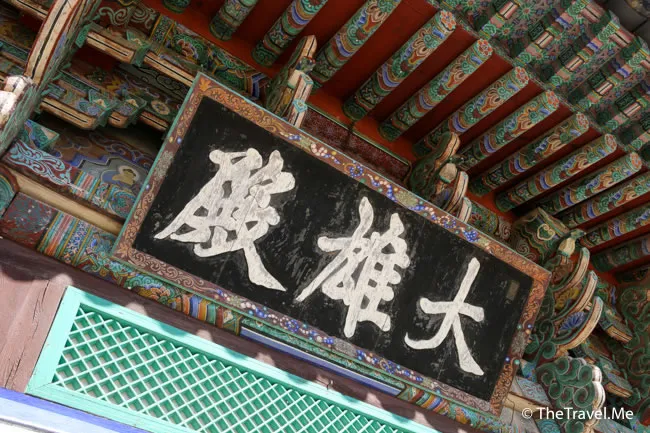 大雄殿
© TheTravel.Me